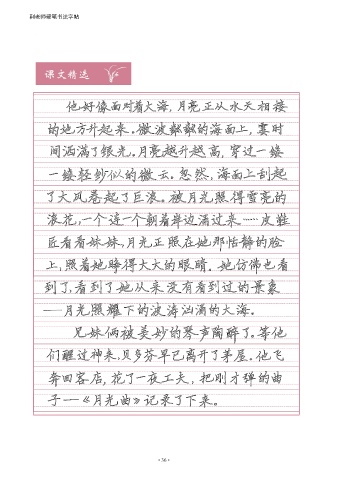 课文精选
他好像面对着大海,月亮正从水天相接
的地方升起来。微波粼粼的海面上,霎时
间洒满了银光。月亮越升越高,穿过一缕
一缕轻纱似的微云。忽然,海面上刮起
了大风卷起了巨浪。被月光照得雪亮的
浪花,一个连一个朝着岸边涌过来……皮鞋
匠看看妹妹,月光正照在她那恬静的脸
上,照着她睁得大大的眼睛。她仿佛也看
到了,看到了她从来没有看到过的景象
——月光照耀下的波涛汹涌的大海。
兄妹俩被美妙的琴声陶醉了。等他
们醒过神来,贝多芬早已离开了茅屋。他飞
奔回客店,花了一夜工夫,把刚才弹的曲
子——《月光曲》记录了下来。
·36·